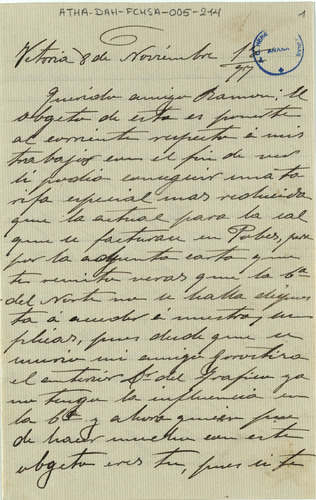 ATHA-DAH-FCHSA-005-214
1
Vitoria 8 de Noviembre 1º/97
Querido amigo Ramon: El
obgeto de esta es ponerte
al corriente respecto á mis
trabajos con el fin de ver
si podia conseguir una ta
rifa especial mas reducida
que la actual para la sal
que se factura en Pobes, pues
por la adjunta carta que
te remito veras que la Cª
del Norte no se halla dispues
ta á acceder á nuestras su
plicas, pues desde que se
murio mi amigo Gorostiza
el anterior Gº del Trafico ya
no tengo la influencia en
la Cª y ahora quien pue
de hacer mucho con este
obgeto eres tu, pues si te